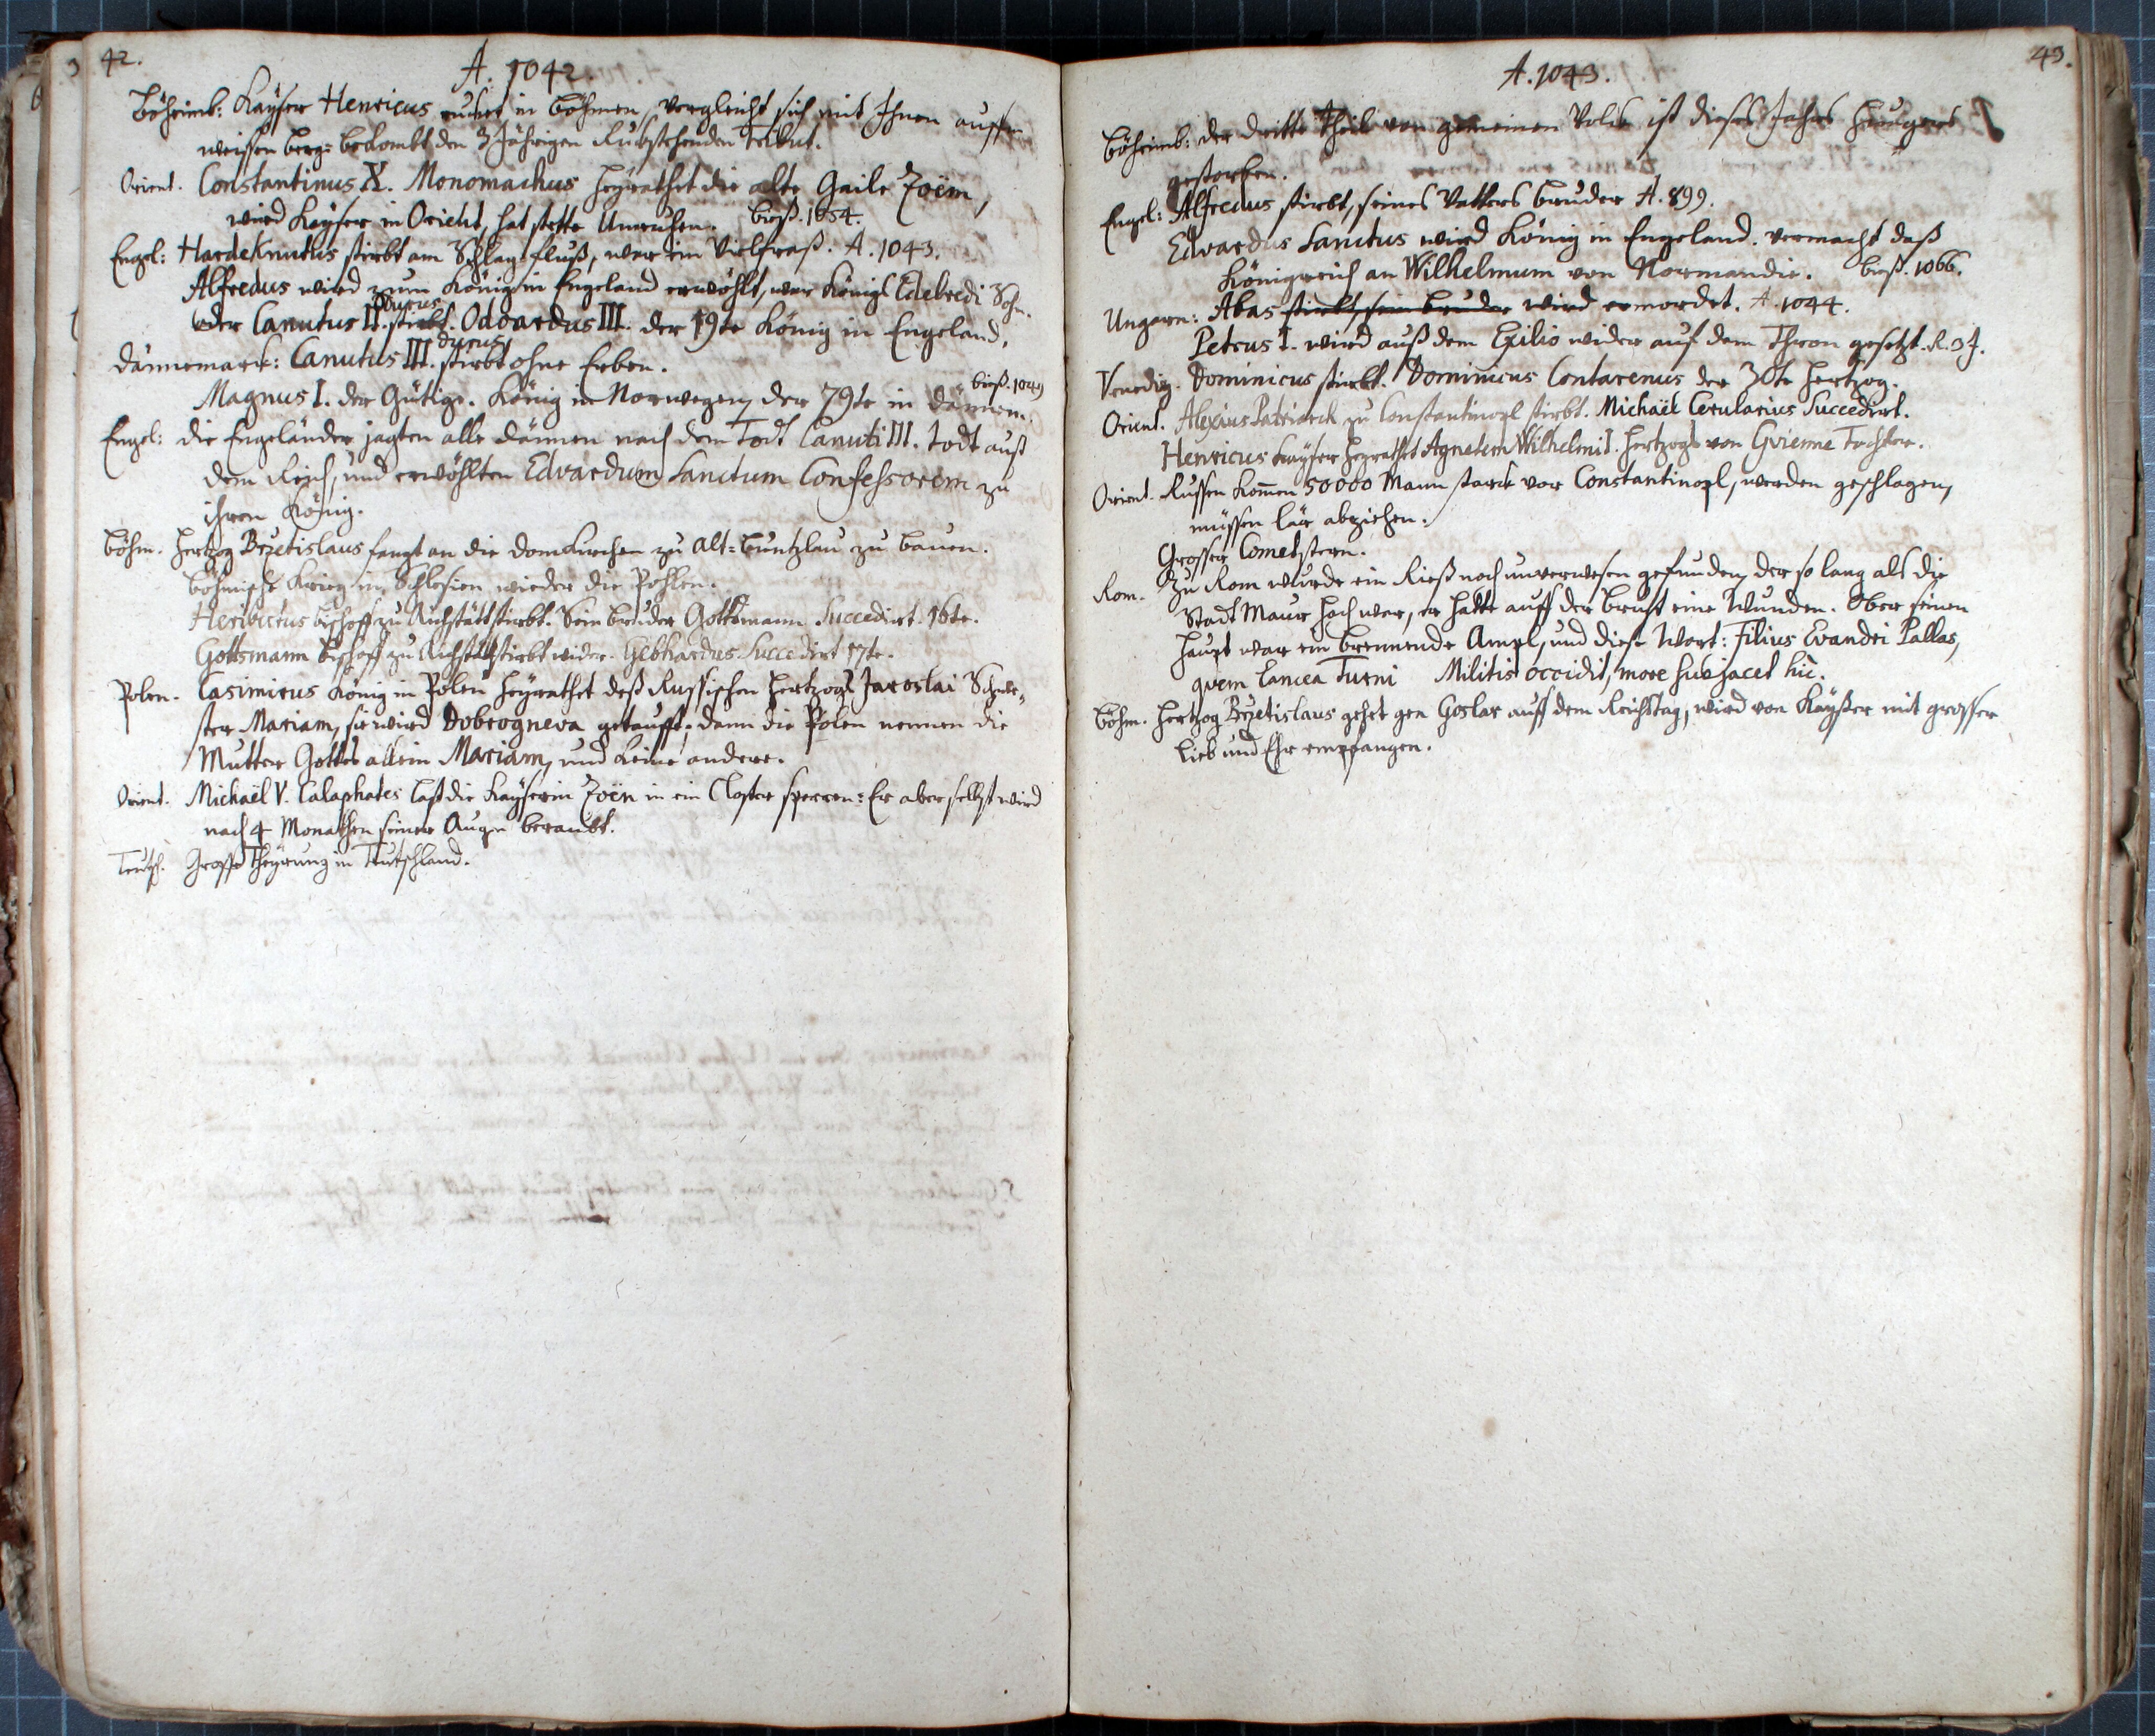 42.
A. 1042.
Böheimb: Kayser Henricus rucket in Böhmen, vergleicht sich mit Ihnen auffm
weissen berg: bekombt den 3 Jährigen Rukstehenden tribut.
Orient. Constantinus X. Monomachus heyrathet die alte Gaile Zoëm,
wird Kayser in Orient, hat stette Unruhen. biß. 1054.
Engel: HardeKnutus stirbt am Schlagfluß, war ein Vielfraß. A. 1043.
Alfredus wird zum König in Engeland erwöhlt, war Königs Edelredi Sohn.
oder Canutus II. durus stirbt. Odoardus III. der 19te König in Engeland,
Dännemarck: Canutus III. durus stirbt ohne Erben.
Magnus I. der Gütige. König in Norwegen, der 79te in Dännem. biß. 1049
Engel: die Engeländer jagten alle Dännen nach dem Todt Canuti III. todt auß
dem Reich, und erwöhlten Edvardum Sanctum Confessorem zu
ihren König.
Böhm. Hertzog Brzetislaus fangt an die Domkirchen zu Alt-Buntzlau zu bauen.
Böhmische Krieg in Schlesien wieder die Pohlen.
Heribertus bischoff zu Aichstätt stirbt. Sein bruder Gottsmann Succedirt. 16te.
Gottsmann bischoff zu Aichstätt stirbt wider. Gebhardus Succedirt 17te.
Polen. Casimirus König in Polen heyrathet deß Russischen Hertzogs Jaroslai Schwe-
ster Mariam, sie wird Dobrogneva getaufft; dann die Polen nennen die
Mutter Gottes allein Mariam, und keine andere.
Orient. Michaël V. Calaphates last die Kayserin Zoën in ein Closter sperren: Er aber selbst wird
nach 4 Monathen seiner Augen beraubt.
Teutsch. Grosse Theyrung in Teutschland.
43.
A. 1043.
Böheimb: der dritte Theil von gemeinen Volck ist dieses Jahrs Hungers
gestorben.
Engel: Alfredus stirbt, seines Vatters bruder A. 899.
Edvardus Sanctus wird König in Engeland. vermacht daß
Königreich an Wilhelmum von Normandie. biß. 1066.
Ungarn: Abas stirbt, sein bruder wird ermordet. A. 1044.
Petrus I. wird auß dem Exilio wider auf dem Thron gesetzt. R. 3 J.
Venedig. Dominicus stirbt. Dominicus Contarenus der 30te Hertzog.
Orient. Alexius Patriarch zu Constantinopl stirbt. Michaël Cerularius Succedirt.
Henricus Kayser heyrathet Agnetem Wilhelmi I. Hertzogs von Gvienne Tochter.
Orient. Russen kommen 50000 Mann starck vor Constantinopl, werden geschlagen,
müssen lär abziehen.
Grosser Cometstern.
Rom. Zu Rom wurde ein Rieß noch unverwesen gefunden, der so lang als die
Stadt Maur hoch war, er hatte auff der brust eine Wunden. Ober seinen
Haupt war ein brennende Ampl, und diese Wort: Filius Evandri Pallas,
qvem Lancea Turni Militis occidit, more suo jacet hic.
Böhm. Hertzog Brzetislaus gehet gen Goslar auff dem Reichstag, wird von Kayser mit grosser
Lieb und Ehr empfangen.